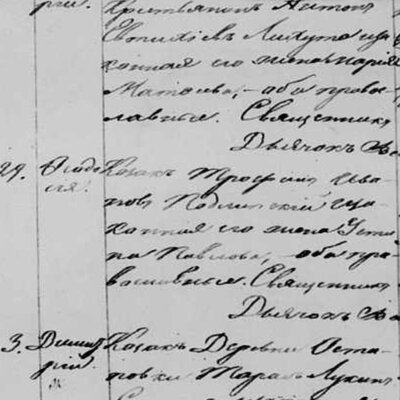 рий.
Крестьянинъ Антонъ
Евтихіевъ Лихута и за-
конная его жена Марія
Матвѣева, - оба право-
славные. Священникъ
Дьячокъ
29. Ѳеодо-
сія.
Козакъ Трофимъ Ива-
новъ и за-
конная его жена Усти-
на Павлова, - оба пра-
вославные. Священникъ
Дьячокъ
3. Димит-
рій
Козакъ Деревни Оста-
повки Тарасъ Лукинъ